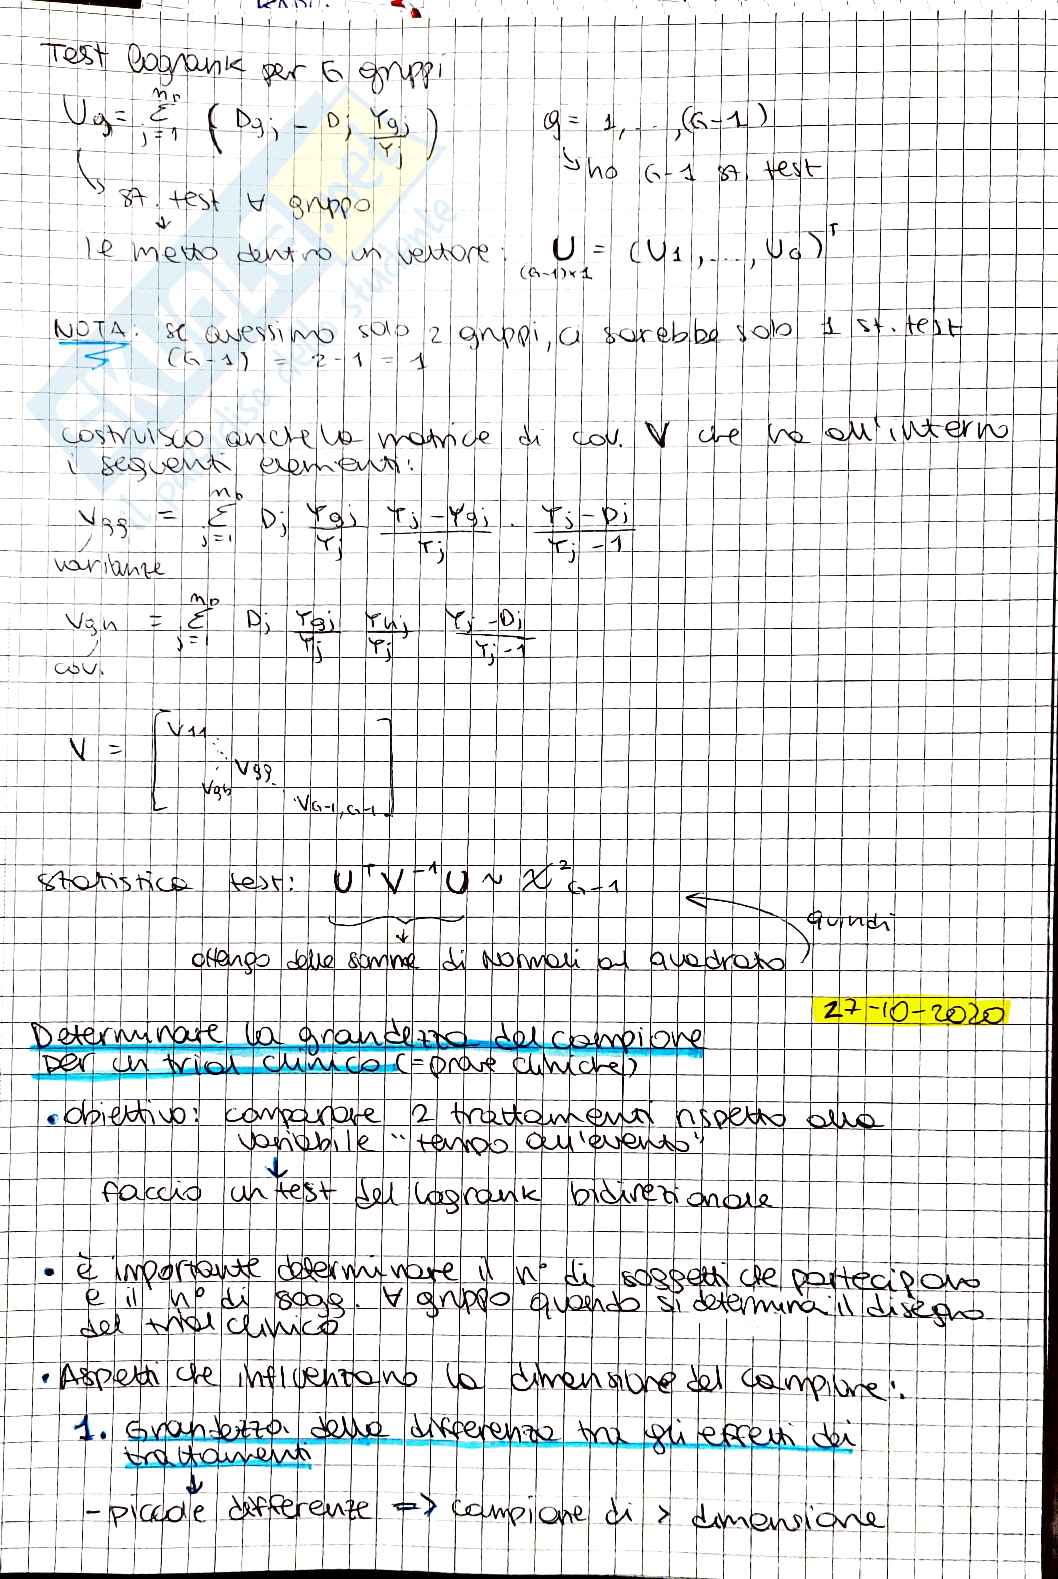 Test logrank per G gruppi
Ug = Σ_{j=1}^{n_D} ( Dgj - Dj Ygj/Yj )   g = 1,...,(G-1)
↳ ho G-1 st. test
↳ st. test ∀ gruppo
↓
le metto dentro un vettore: U = (U1,...,UG)^T
(G-1)×1
NOTA: se avessimo solo 2 gruppi, ci sarebbe solo 1 st. test
(G-1) = 2-1 = 1
costruisco anche la matrice di cov. V che ha all'interno
i seguenti elementi:
Vgg = Σ_{j=1}^{n_D} Dj Ygj/Yj (Yj-Ygj)/Yj · (Yj-Dj)/(Yj-1)
varianze
Vgh = Σ_{j=1}^{n_D} Dj Ygj/Yj Yhj/Yj (Yj-Dj)/(Yj-1)
cov.
V = [ V11
Vgg
Vgh
VG-1,G-1 ]
statistica test: U^T V^-1 U ~ χ²_{G-1}
quindi
ottengo delle somme di Normali al quadrato
27-10-2020
Determinare la grandezza del campione
per un trial clinico (= prove cliniche)
• obiettivo: comparare 2 trattamenti rispetto alla
variabile "tempo all'evento"
↓
faccio un test del logrank bidirezionale
• è importante determinare il n° di soggetti che partecipano
e il n° di sogg. ∀ gruppo quando si determina il disegno
del trial clinico
• Aspetti che influenzano la dimensione del campione:
1. Grandezza della differenza tra gli effetti dei
trattamenti
↓
- piccole differenze => campione di > dimensione
SKUOLA.net
il paradiso dello studente